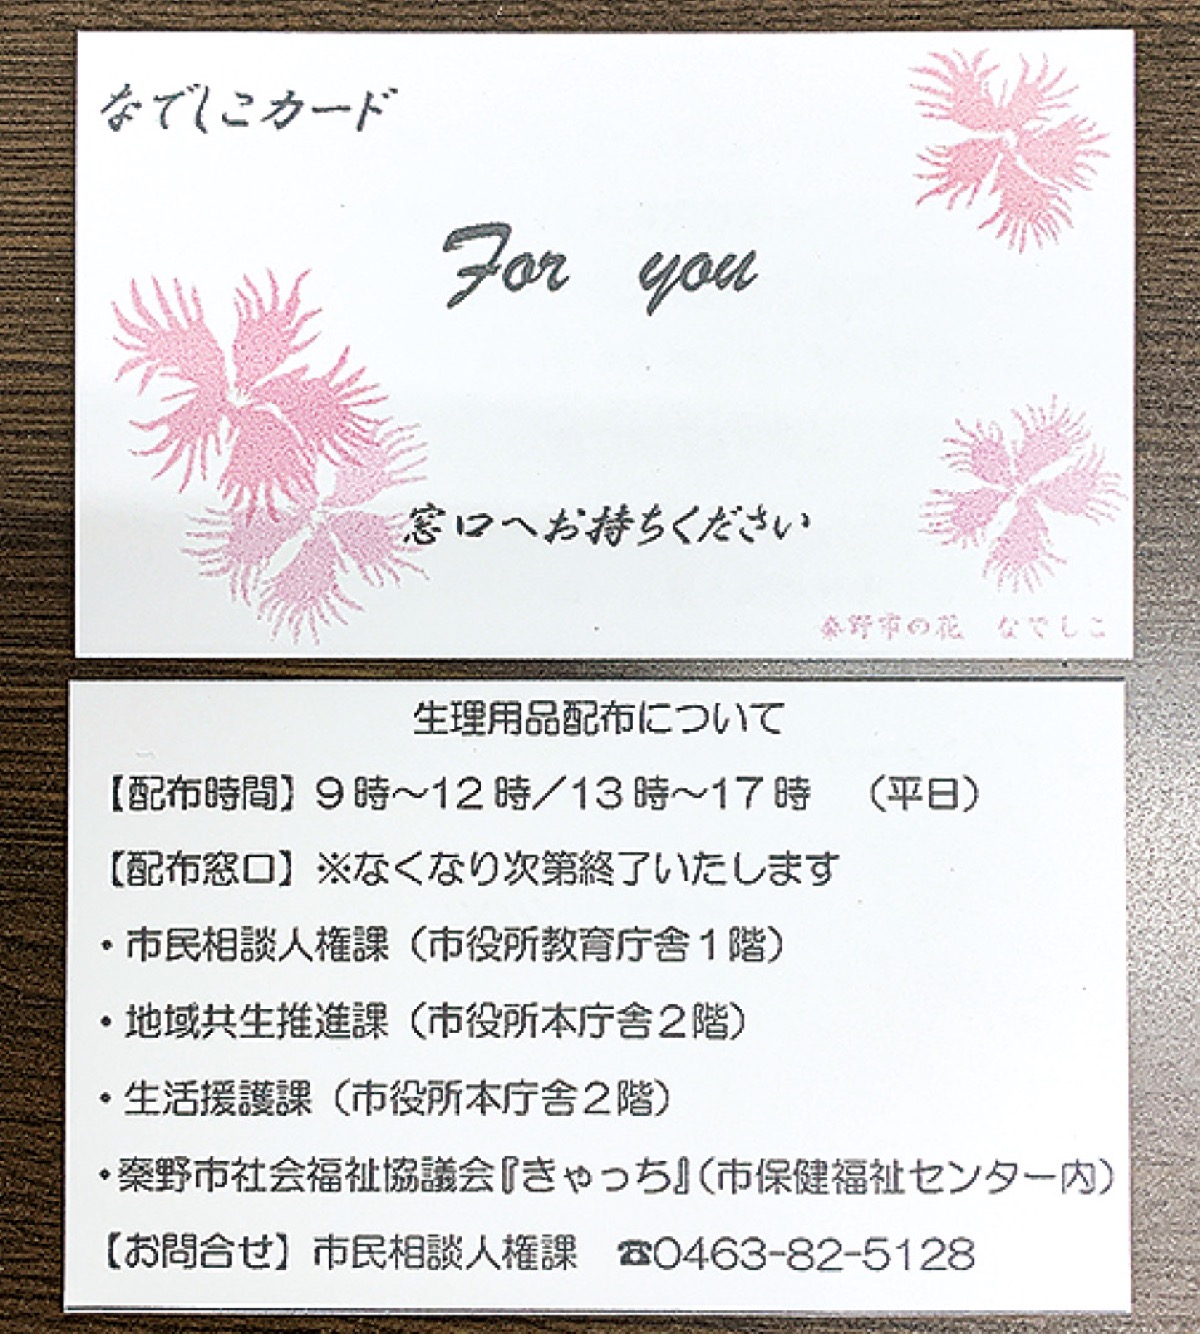 なでしこカード
For you
窓口へお持ちください
秦野市の花 なでしこ
生理用品配布について
【配布時間】9時～12時／13時～17時 （平日）
【配布窓口】※なくなり次第終了いたします
・市民相談人権課（市役所教育庁舎1階）
・地域共生推進課（市役所本庁舎2階）
・生活援護課（市役所本庁舎2階）
・秦野市社会福祉協議会『きゃっち』（市保健福祉センター内）
【お問合せ】市民相談人権課 ☎0463-82-5128